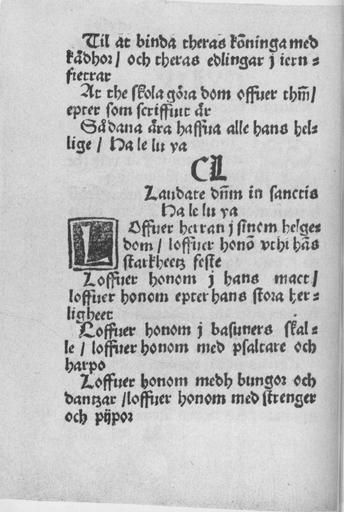 Til at binda theras kőninga med
kådhor / och theras edlingar j iern =
fietrar
At the skola göra dom offuer thm̄ /
epter som scriffuit är
Sådana ära haffua alle hans hel-
lige / Ha le lu ya
CL
Laudate dn̄m in sanctis
Ha le lu ya
LOffuer herran j sinom helge-
dom / loffuer honō vthi hās
starkheetz feste
Loffuer honom j hans mact /
loffuer honom epter hans stora her-
ligheet
Loffuer honom j basuners skal-
le / loffuer honom med psaltare och
harpo
Loffuer honom medh bungor och
dantzar / loffuer honom med strenger
och pijpor